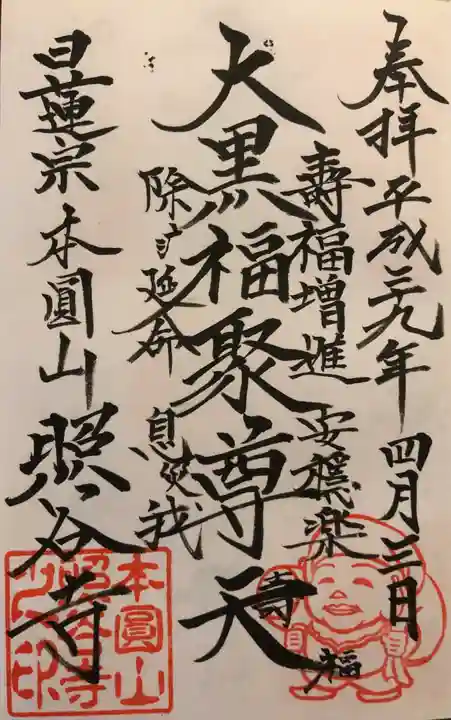 奉拝 平成二九年 四月三日
壽福増進 安穏楽
大黒福聚尊天
除 延命 息災
日蓮宗 本圓山 照谷寺
本圓山
照谷寺
印
寿
福